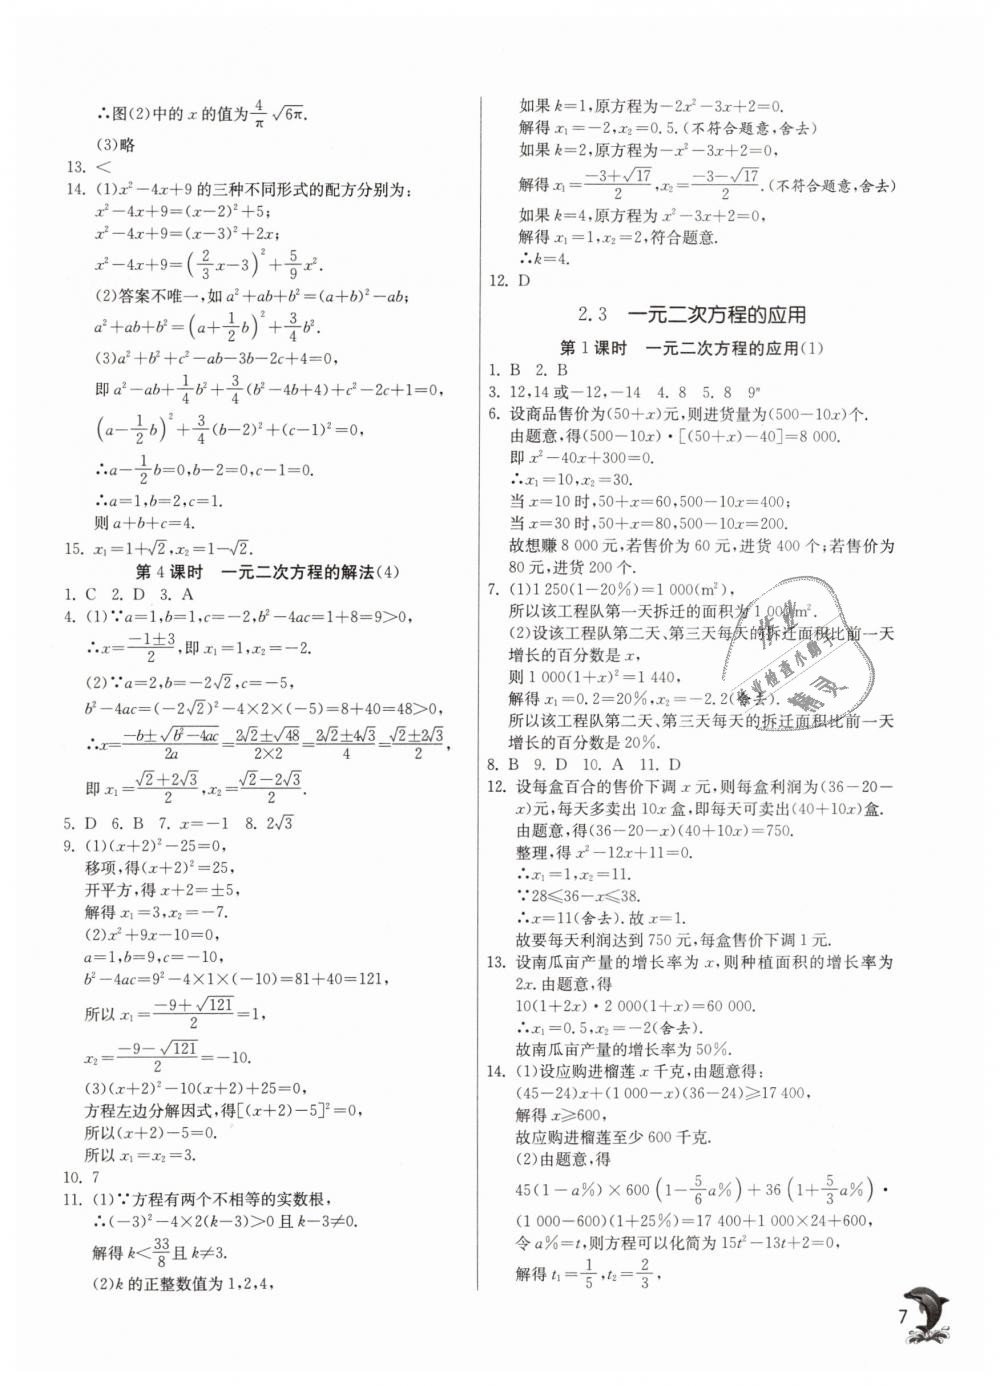 ∴图(2)中的 x 的值为4/π √6π.
(3)略
13. <
14. (1)x²-4x+9 的三种不同形式的配方分别为:
x²-4x+9=(x-2)²+5;
x²-4x+9=(x-3)²+2x;
x²-4x+9=(2/3x-3)²+5/9x².
(2)答案不唯一,如 a²+ab+b²=(a+b)²-ab;
a²+ab+b²=(a+1/2b)²+3/4b².
(3)a²+b²+c²-ab-3b-2c+4=0,
即 a²-ab+1/4b²+3/4(b²-4b+4)+c²-2c+1=0,
(a-1/2b)²+3/4(b-2)²+(c-1)²=0,
∴a-1/2b=0,b-2=0,c-1=0.
∴a=1,b=2,c=1.
则 a+b+c=4.
15. x₁=1+√2,x₂=1-√2.
第 4 课时 一元二次方程的解法(4)
1. C 2. D 3. A
4. (1)∵a=1,b=1,c=-2,b²-4ac=1+8=9>0,
∴x=(-1±3)/2,即 x₁=1,x₂=-2.
(2)∵a=2,b=-2√2,c=-5,
b²-4ac=(-2√2)²-4×2×(-5)=8+40=48>0,
∴x=(-b±√(b²-4ac))/2a=(2√2±√48)/(2×2)=(2√2±4√3)/4=(√2±2√3)/2,
即 x₁=(√2+2√3)/2,x₂=(√2-2√3)/2.
5. D 6. B 7. x=-1 8. 2√3
9. (1)(x+2)²-25=0,
移项,得(x+2)²=25,
开平方,得 x+2=±5,
解得 x₁=3,x₂=-7.
(2)x²+9x-10=0,
a=1,b=9,c=-10,
b²-4ac=9²-4×1×(-10)=81+40=121,
所以 x₁=(-9+√121)/2=1,
x₂=(-9-√121)/2=-10.
(3)(x+2)²-10(x+2)+25=0,
方程左边分解因式,得[(x+2)-5]²=0,
所以(x+2)-5=0.
所以 x₁=x₂=3.
10. 7
11. (1)∵方程有两个不相等的实数根,
∴(-3)²-4×2(k-3)>0 且 k-3≠0.
解得 k<33/8且 k≠3.
(2)k 的正整数值为 1,2,4,
如果 k=1,原方程为-2x²-3x+2=0.
解得 x₁=-2,x₂=0.5.(不符合题意,舍去)
如果 k=2,原方程为-x²-3x+2=0,
解得 x₁=(-3+√17)/2,x₂=(-3-√17)/2.(不符合题意,舍去)
如果 k=4,原方程为 x²-3x+2=0,
解得 x₁=1,x₂=2,符合题意.
∴k=4.
12. D
2.3 一元二次方程的应用
第 1 课时 一元二次方程的应用(1)
1. B 2. B
3. 12,14 或-12,-14 4. 8 5. 8 9ⁿ
6. 设商品售价为(50+x)元,则进货量为(500-10x)个.
由题意,得(500-10x)·[(50+x)-40]=8 000.
即 x²-40x+300=0.
∴x₁=10,x₂=30.
当 x=10 时,50+x=60,500-10x=400;
当 x=30 时,50+x=80,500-10x=200.
故想赚 8 000 元,若售价为 60 元,进货 400 个;若售价为
80 元,进货 200 个.
7. (1)1 250(1-20%)=1 000(m²),
所以该工程队第一天拆迁的面积为 1 000 m².
(2)设该工程队第二天、第三天每天的拆迁面积比前一天
增长的百分数是 x,
则 1 000(1+x)²=1 440,
解得 x₁=0.2=20%,x₂=-2.2(舍去).
所以该工程队第二天、第三天每天的拆迁面积比前一天
增长的百分数是 20%.
8. B 9. D 10. A 11. D
12. 设每盒百合的售价下调 x 元,则每盒利润为(36-20-
x)元,每天多卖出 10x 盒,即每天可卖出(40+10x)盒.
由题意,得(36-20-x)(40+10x)=750.
整理,得 x²-12x+11=0.
∴x₁=1,x₂=11.
∵28≤36-x≤38.
∴x=11(舍去).故 x=1.
故要每天利润达到 750 元,每盒售价下调 1 元.
13. 设南瓜亩产量的增长率为 x,则种植面积的增长率为
2x.由题意,得
10(1+2x)·2 000(1+x)=60 000.
∴x₁=0.5,x₂=-2(舍去).
故南瓜亩产量的增长率为 50%.
14. (1)设应购进榴莲 x 千克,由题意得:
(45-24)x+(1 000-x)(36-24)≥17 400,
解得 x≥600,
故应购进榴莲至少 600 千克.
(2)由题意,得
45(1-a%)×600(1-5/6a%)+36(1+5/3a%)·
(1 000-600)(1+25%)=17 400+1 000×24+600,
令 a%=t,则方程可以化简为 15t²-13t+2=0,
解得 t₁=1/5,t₂=2/3,
作业
作业检查小助手
精灵
7